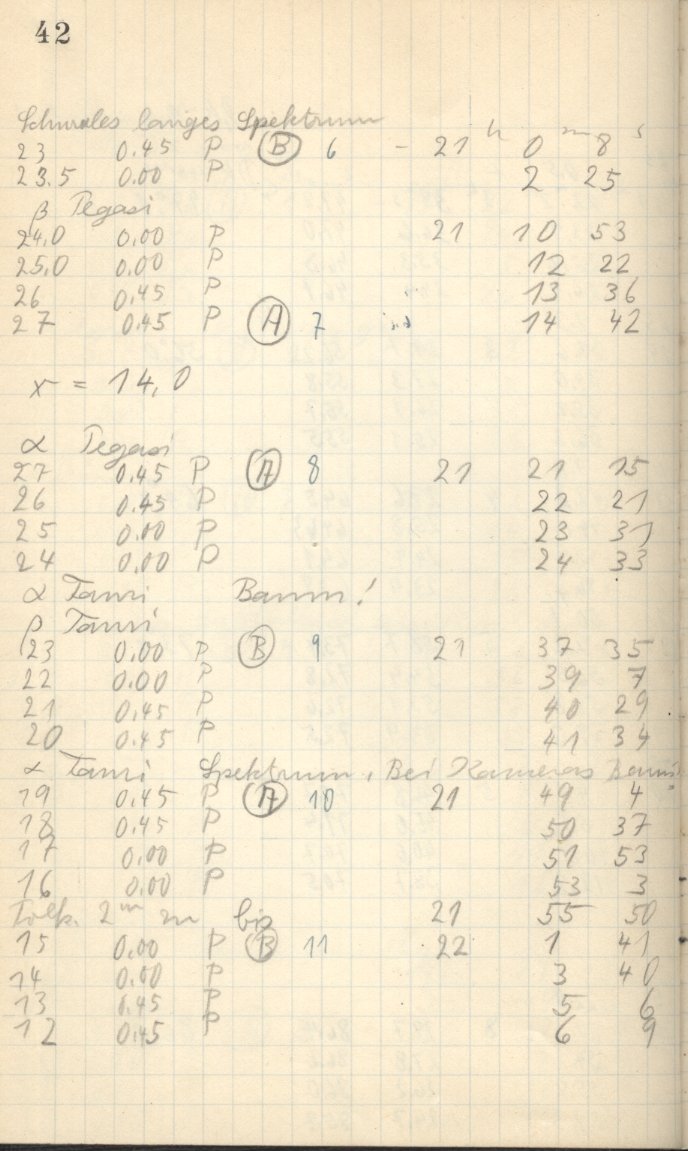 42
Schmales langes Spektrum
23 0.45 P B 6 - 21 h 0 m 8 s
23.5 0.00 P 2 25
β Pegasi
24,0 0.00 P 21 10 53
25,0 0.00 P 12 22
26 0.45 P 13 36
27 0.45 P A 7 14 42
x = 14,0
α Pegasi
27 0.45 P A 8 21 21 15
26 0.45 P 22 21
25 0.00 P 23 31
24 0.00 P 24 33
α Tauri Baum!
β Tauri
23 0.00 P B 9 21 37 35
22 0.00 P 39 7
21 0.45 P 40 29
20 0.45 P 41 34
α Tauri Spektrum, Bei Kameras Baum
19 0.45 P A 10 21 49 4
18 0.45 P 50 37
17 0.00 P 51 53
16 0.00 P 53 3
2 m bis 21 55 50
15 0.00 P B 11 22 1 41
14 0.00 P 3 40
13 0.45 P 5 6
12 0.45 P 6 9